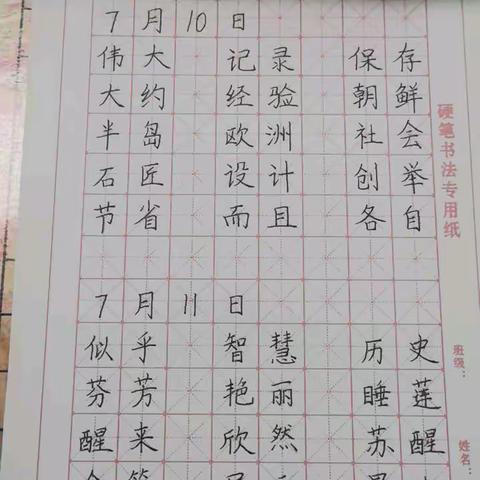 7月10日
伟大 记录 保存
大约 经验 朝鲜
半岛 欧洲 社会
石匠 设计 创举
节省 而且 各自
7月11日
似乎 智慧 历史
芬芳 艳丽 睡莲
醒来 欣然 苏醒
硬笔书法专用纸
班级:
姓名: